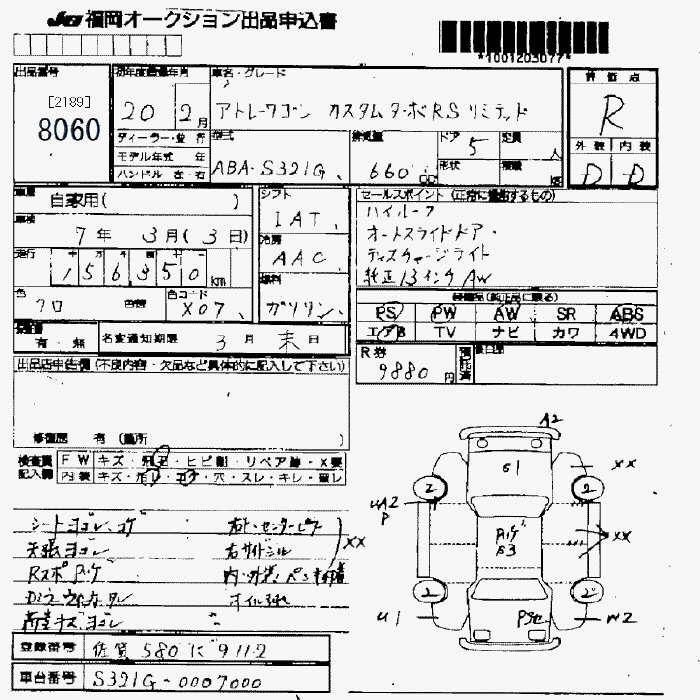 JU 福岡オークション出品申込書
*1001203077*
出品番号
[2189]
8060
初年度登録年月
20 2月
車名・グレード
アトレーワゴン カスタムターボRS リミテッド
評価点
R
外装 内装
D D
ディーラー・並行
モデル年式 年
ハンドル 左・右
型式
ABA-S321G
排気量
660 cc
ドア
5
形状
定員
人
積載
車歴
自家用( )
車検
7年 3月(3日)
走行
156350 km
色
クロ
色替
色コード
X07
シフト
IAT
冷房
AAC
燃料
ガソリン
セールスポイント
ハイルーフ
オートスライドドア・
ディスチャージライト
純正13インチAW
装備品(純正品に限る)
PS PW AW SR ABS
エアB TV ナビ カワ 4WD
有・無
名変通知期限 3月末日
R券
9880円
預託済
出品店申告欄(不良内容・欠品など具体的に記入して下さい)
修復歴 有 (箇所 )
検査員記入欄
FW キズ・飛石・ヒビ割・リペア跡・X要
内装 キズ・汚レ・コゲ・穴・スレ・キレ・破レ
シートヨゴレ、コゲ
天張ヨゴレ
荷室キズヨゴレ
右F・センターピラー
右サイドシル
XX
A2
XX
XX
S1
2
2
2
2
UA2
P
S3
U1
W2
登録番号
佐賀 580 に 911-2
車台番号
S321G-0007000